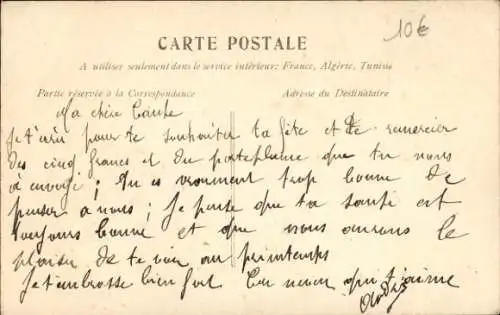 10€
CARTE POSTALE
A utiliser seulement dans le service intérieur: France, Algérie, Tunisie
Partie réservée à la Correspondance
Adresse du Destinataire
Ma chère Tante
Je t'écris pour te souhaiter ta fête et te remercier
des cinq francs et du porteplume que tu nous
a envoyé; Tu es vraiment trop bonne de
penser à nous; Je pense que ta santé est
toujours bonne et que nous aurons le
plaisir de te voir au printemps
Je t'embrasse bien fort Ton neveu qui t'aime